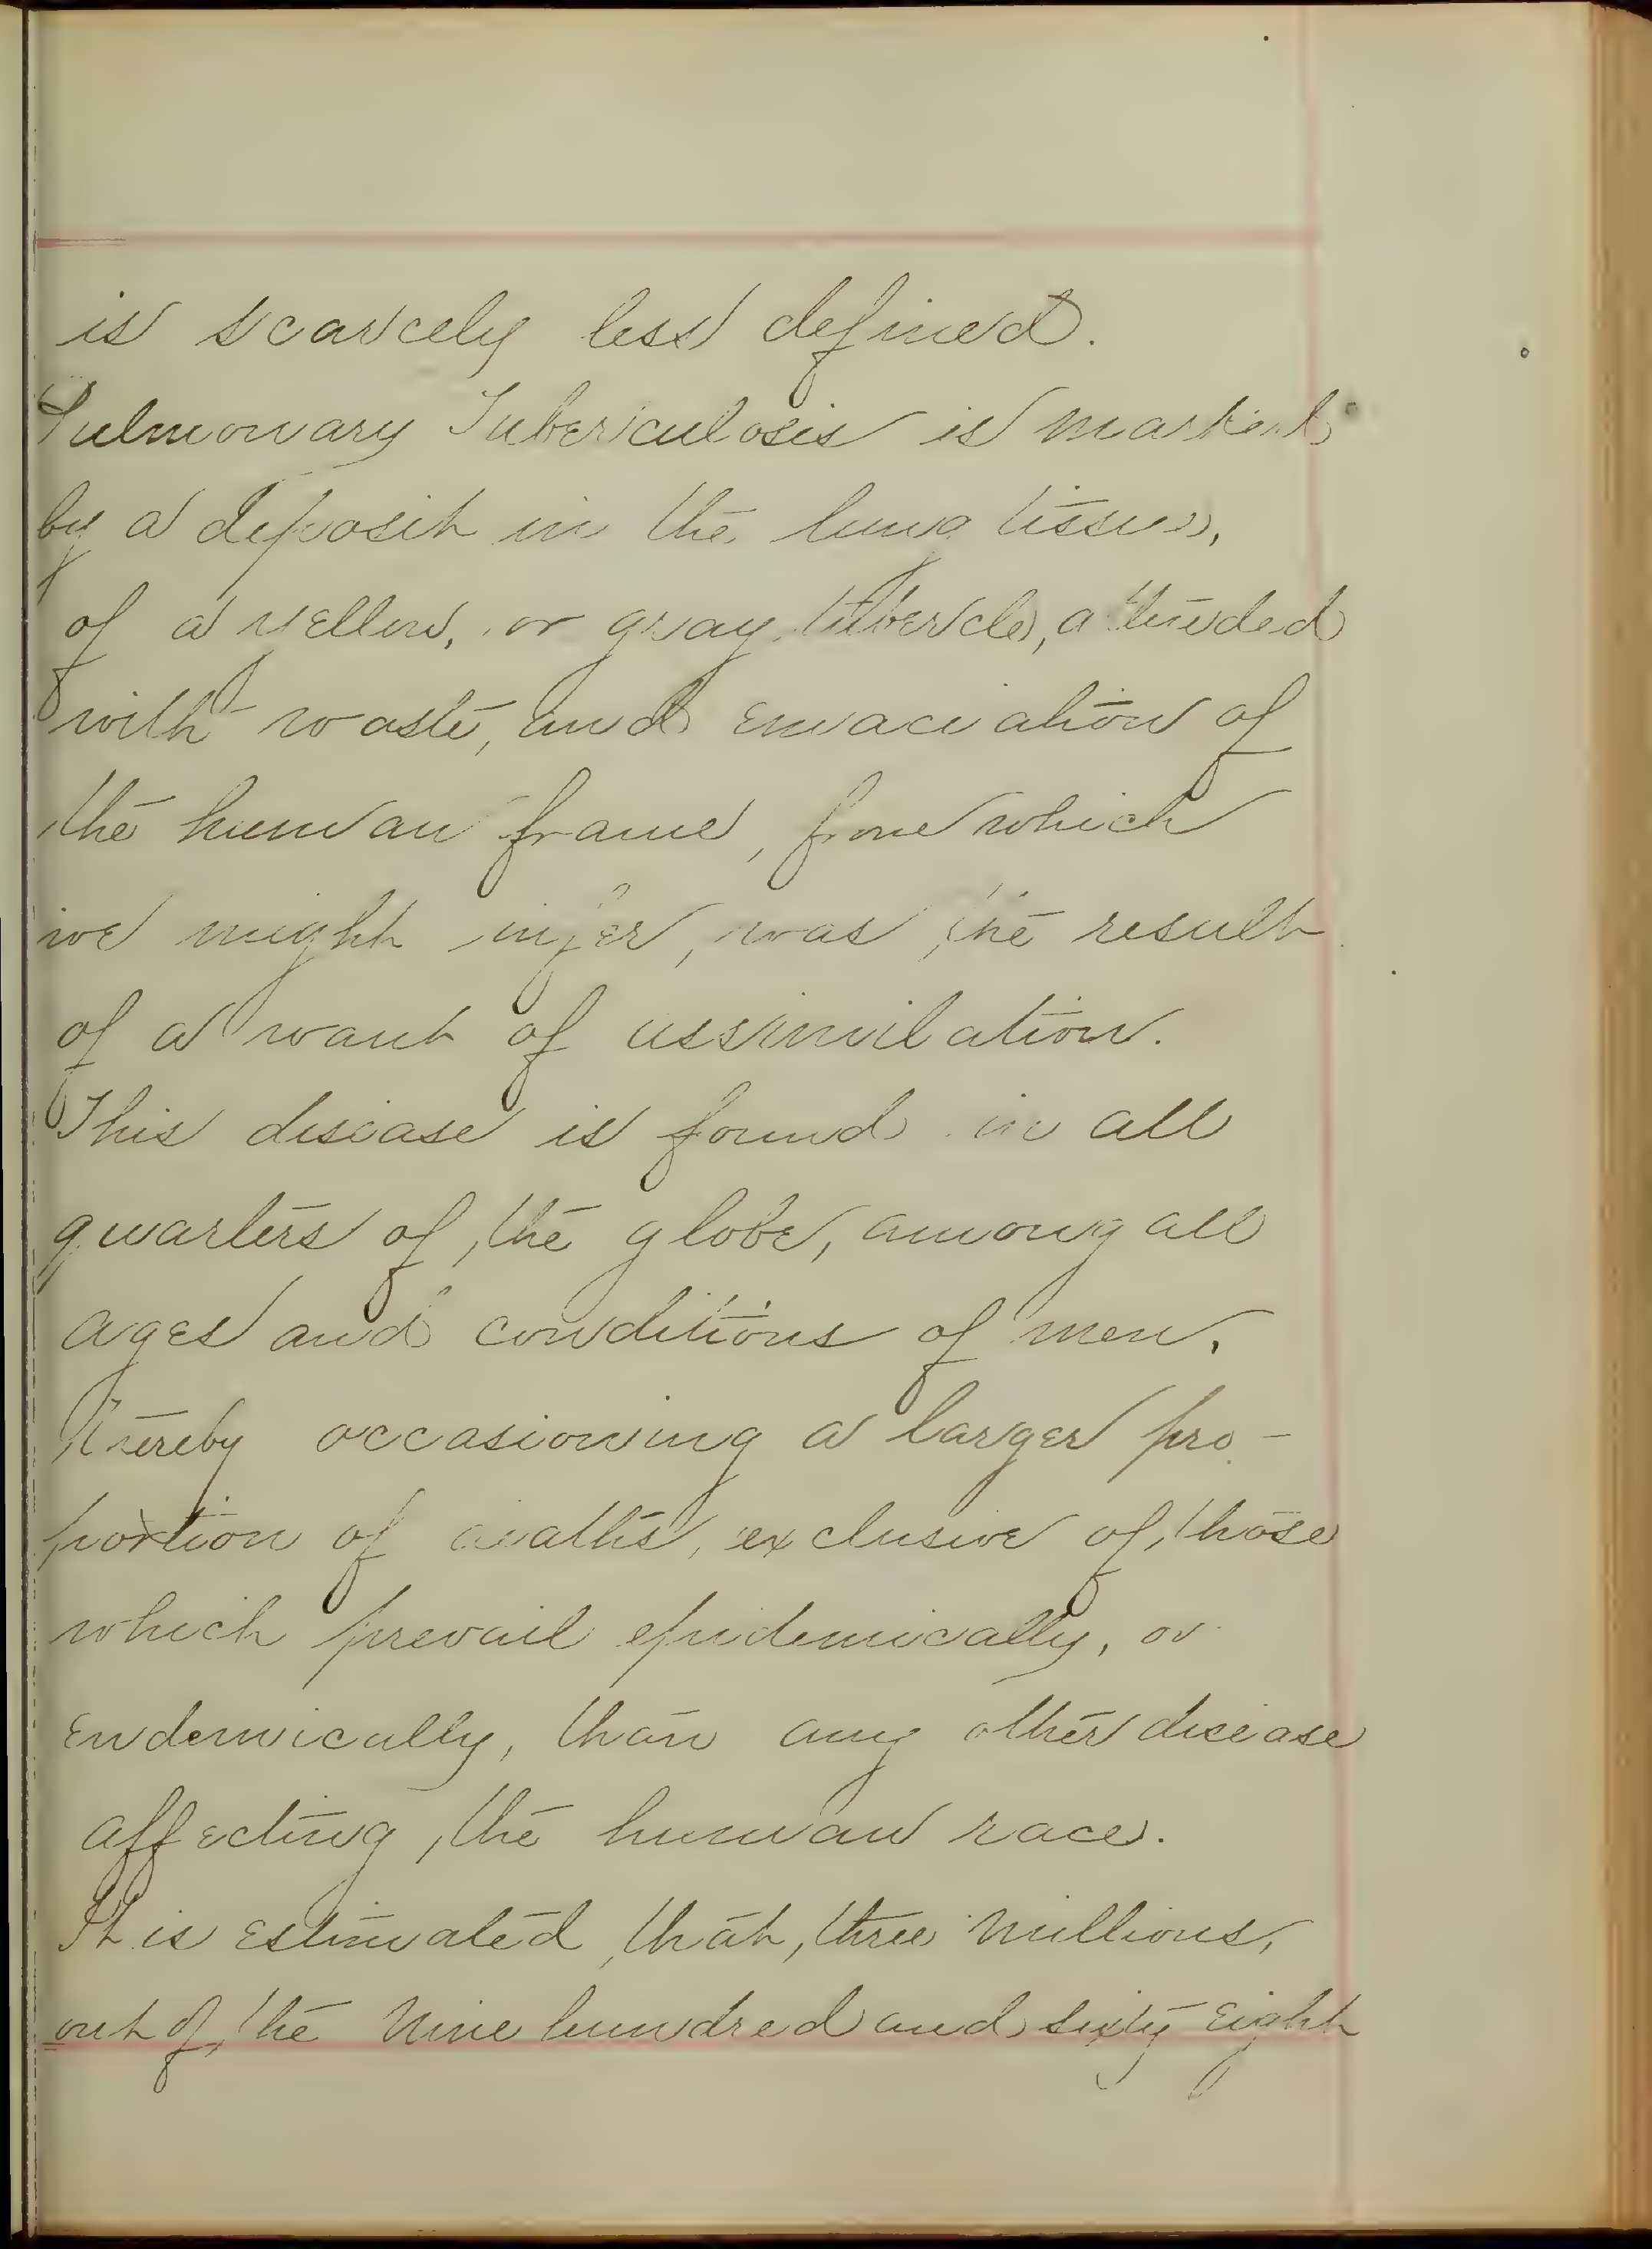 is scarcely less defined.
Pulmonary Tuberculosis is marked
by a deposit in the lung tissue,
of a yellow, or gray tubercle, attended
with waste, and emaciation of
the human frame, from which
we might infer, was the result
of a want of assimilation.
This disease is found in all
quarters of the globe, among all
ages and conditions of men,
thereby occasioning a larger pro-
portion of deaths, exclusive of those
which prevail epidemically, or
endemically, than any other disease
affecting the human race.
It is estimated that, three millions,
out of the nine hundred and sixty eight